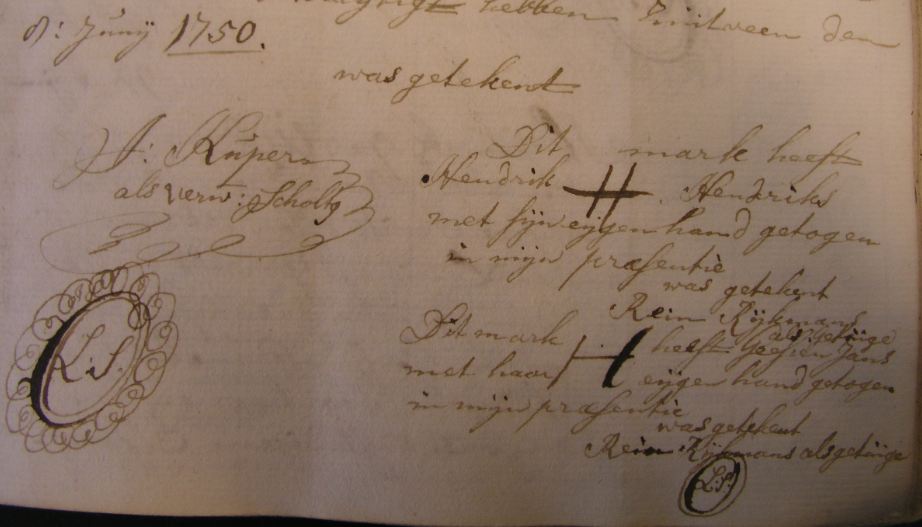 hebben Zuitveen den
8: Junij 1750.
was getekent
J: Kuper
als verw: Scholtz
L: S:
Dit mark heeft
Hendrik H. Hendriks
met sijn eijgen hand getogen
in mijn præsentie
was getekent
Rein Rijkmans
als getuige
Dit mark H heeft Geesien Jans
met haar eijgen hand getogen
in mijn præsentie
was getekent
Rein Rijkmans als getuige
L: S: